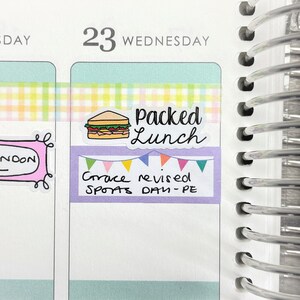 SDAY
23 WEDNESDAY
Packed
Lunch
NDON
Grace revised
SPORTS DAY-PE